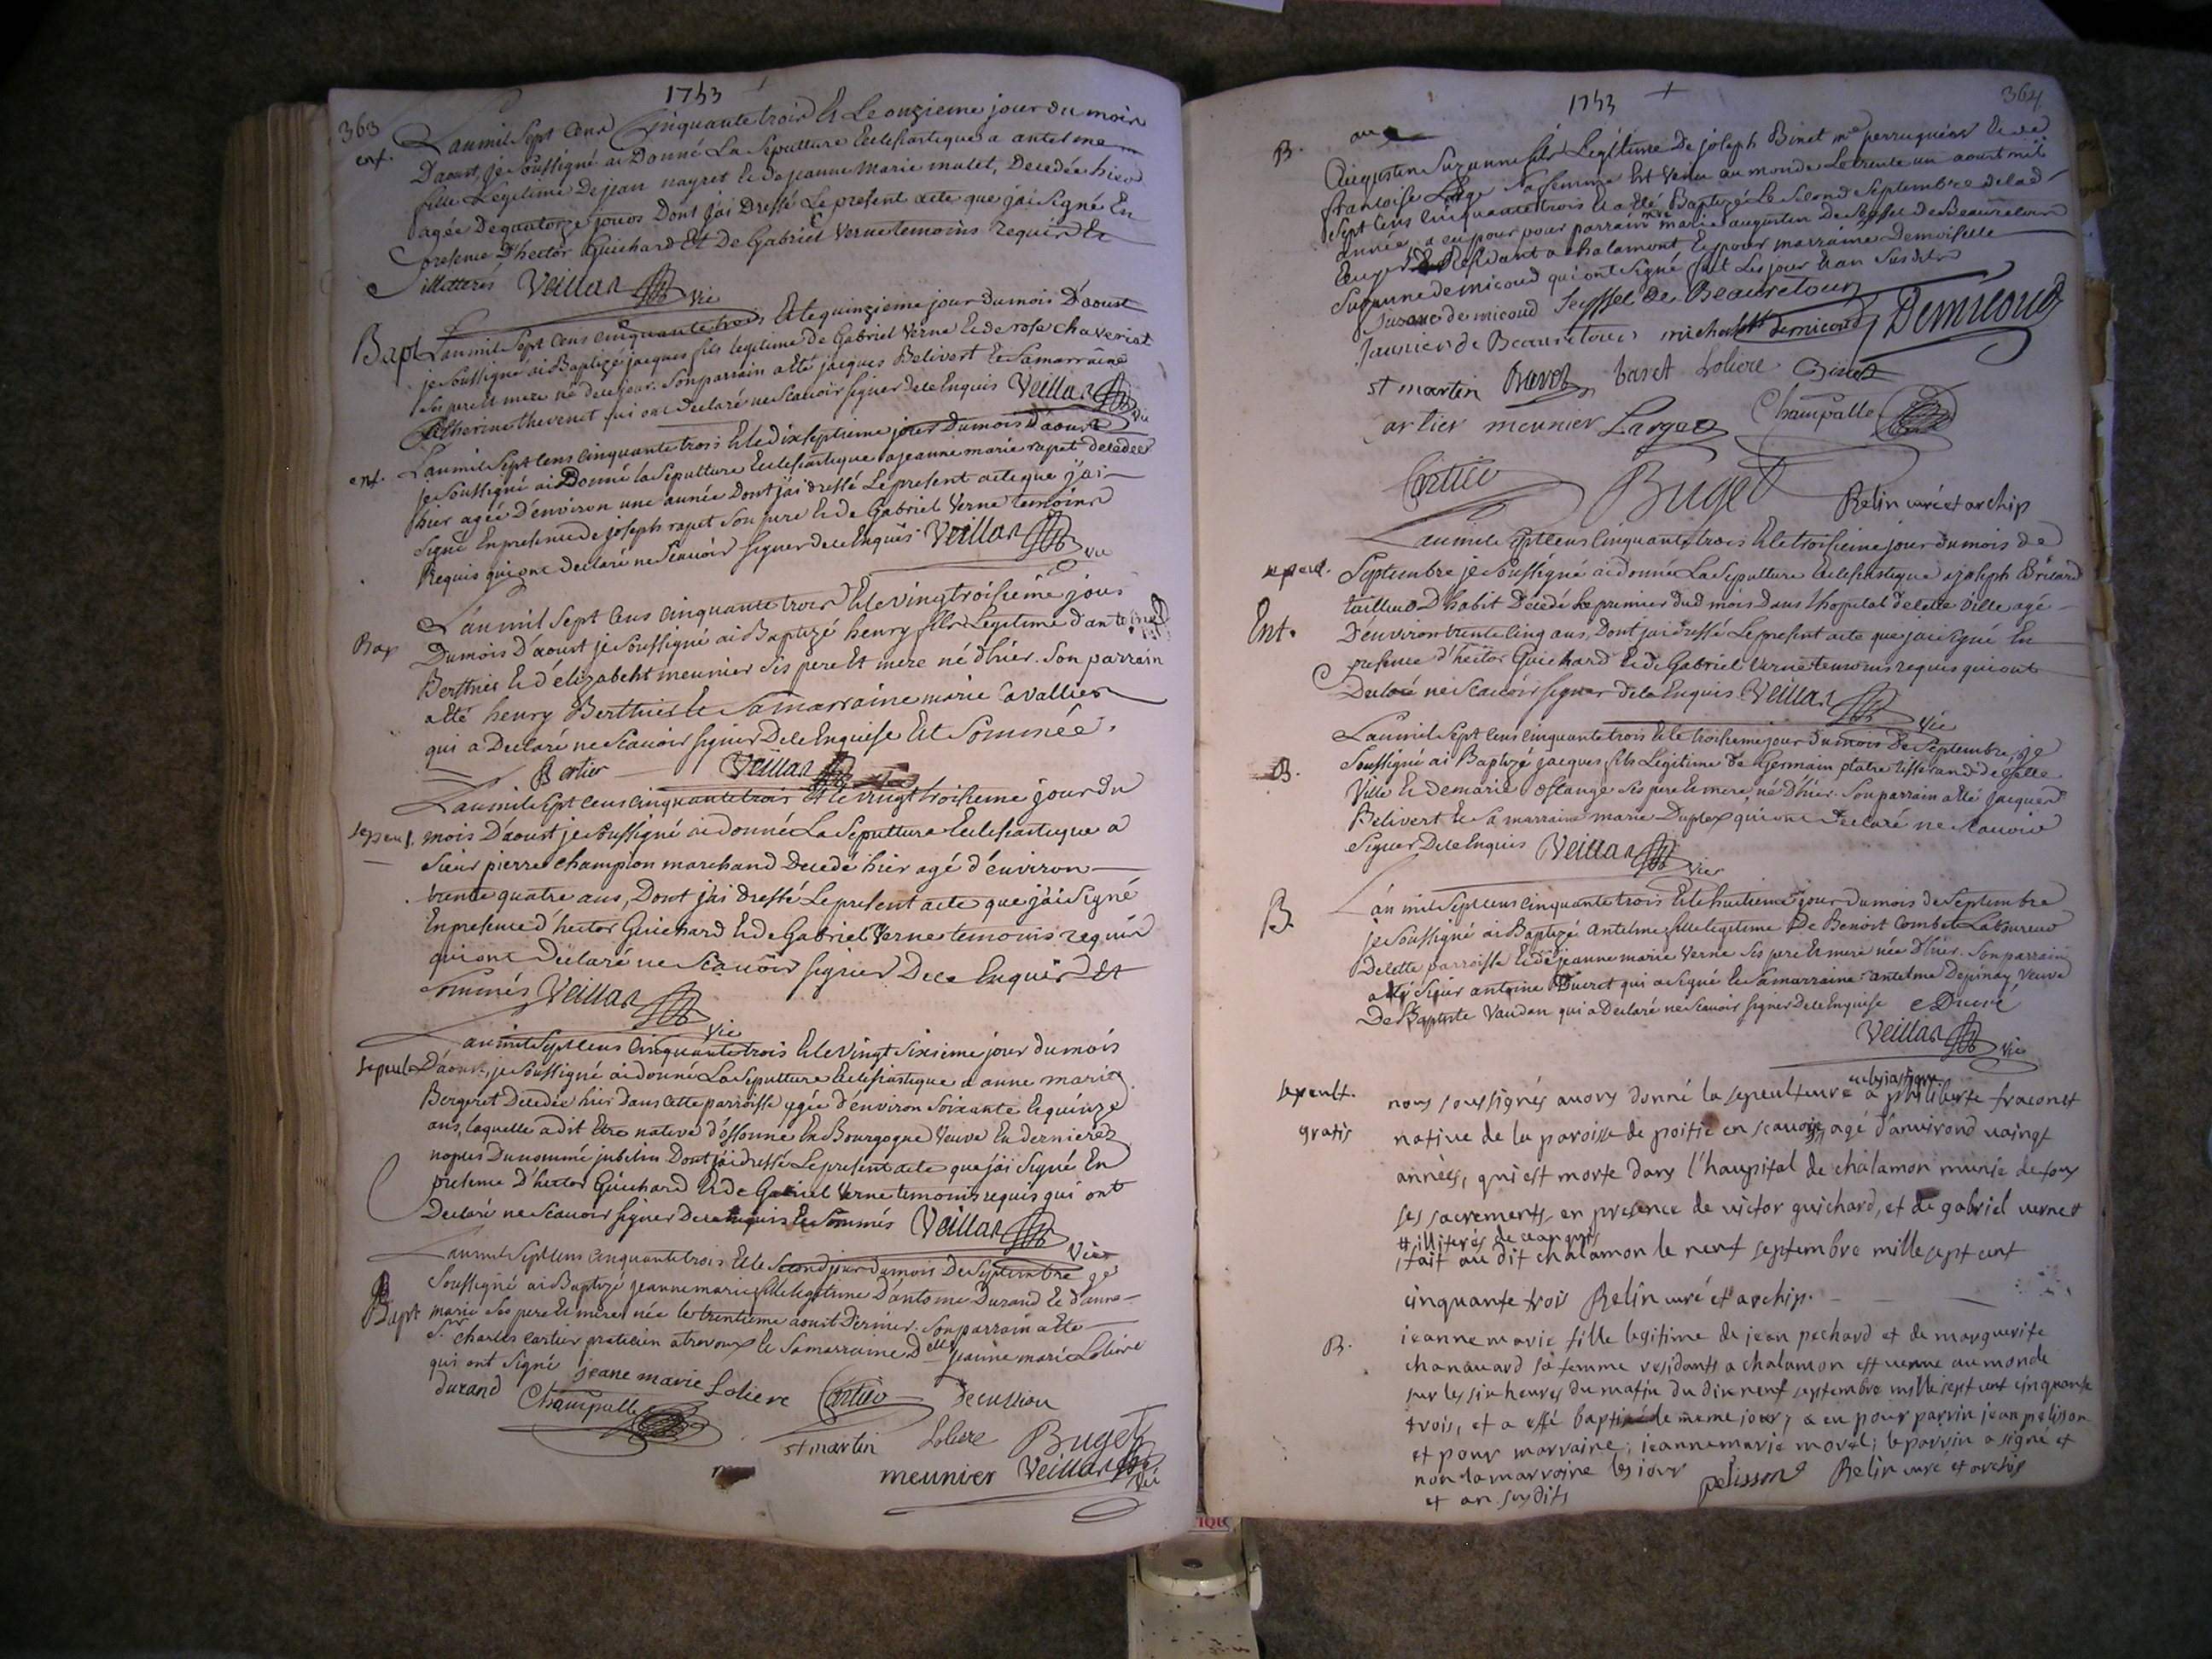 1753
363
L'an mil sept cens cinquante trois Et Le onzieme jour du mois
enf.
D'aoust, je soussigné ai Donné La Sepulture Ecclesiastique a antelme
fille Legitime de jean nayret Et de jeanne Marie mulet, Decedée hier
agée de quatorze jours Dont j'ai Dressé Le present acte que j'ai signé En
presence D'hector Guichard Et De Gabriel Verne temoins requis Et
illitterés Veillas Vic
L'an mil sept cens cinquante trois Et le quinzieme jour du mois D'aoust
Bapt
je soussigné ai Baptizé jacques fils legitime de Gabriel Verne Et de rose chaveriat
ses pere Et mere né de ce jour. Son parrain a été jacques Belivert Et Sa marraine
Catherine thevenet qui ont Declaré ne Scauoir signer de ce Enquis Veillas Vic
L'an mil sept cens cinquante trois Et le dix septieme jour Du mois D'aoust
enf.
je soussigné ai Donné la Sepulture Ecclesiastique a jeanne marie rapet decedée
hier agée D'environ une année Dont j'ai dressé Le present acte que j'ai
signé En presence de joseph rapet son pere Et de Gabriel Verne temoins
Requis qui ont Declaré ne Scauoir signer de ce Enquis Veillas Vic
L'an mil sept cens cinquante trois Et le vingt troisieme jour
Bap
Du mois D'aoust je soussigné ai Baptizé henry fils Legitime d'
Berthier Et d'elizabeht meunier ses pere Et mere né d'hier. Son parrain
a été henry Berthier Et Sa marraine marie Cavallier
qui a Declaré ne Scauoir signer De ce Enquise Et Sommée.
Bertier Veillas
L'an mil sept cens cinquante trois Et le vingt troisieme jour du
sepul.
mois D'aoust je soussigné ai donné La Sepulture Ecclesiastique a
sieur pierre champion marchand Decedé hier agé d'environ
trente quatre ans, Dont j'ai dressé Le present acte que j'ai signé
En presence d'hector Guichard Et de Gabriel Verne temoins requis
qui ont Declaré ne Scauoir signer De ce Enquis Et
Sommés Veillas Vic
L'an mil sept cens cinquante trois Et le Vingt Sixieme jour du mois
sepul
D'aoust, je soussigné ai donné La Sepulture Ecclesiastique a anne marie
Bergeret Decedée hier dans cette parroisse agée d'environ Soixante Et quinze
ans, laquelle a dit Etre native d'ossonne En Bourgogne Veuve En dernieres
nopces Du nommé jubelin Dont j'ai dressé Le present acte que j'ai signé En
presence D'hector Guichard Et de Gabriel Verne temoins requis qui ont
Declaré ne Scauoir signer De ce Enquis Et Sommés Veillas Vic
L'an mil sept cens cinquante trois Et le Second jour du mois De Septembre je
Bapt
soussigné ai Baptizé jeanne marie fille legitime D'antoine Durand Et d'anne
marie ses pere Et mere, née le trentieme aoust Dernier. Son parrain a été
Sr. charles Cartier praticien a trevoux Et Sa marraine Delle jeanne marie Loliere
qui ont signé jeane marie Loliere Cartier
durand Champalle st martin Loliere Buget
meunier Veillas Vic
1753
364
B.
Augustin Suzanne fils Legitime De joseph Binet me perruquier Et de
francoise Large sa femme Est Venu au monde Le trente un aoust mil
sept cens cinquante trois Et a Eté Baptizé Le Second Septembre de lad
année, a eu pour parrain marie augustin De seyssel de Beauretour
Residant a chalamont Et pour marraine Demoiselle
Suzanne de micoud qui ont signé fait Les jour Et an susdits
Suzane de micoud Seyssel de Beauretour
Jaunier de Beauretour michal demicoud Demicoud
st martin Ravet baset Loliere Binet
artier meunier Large Champalle
Cartier Buget Relin curé et archip
L'an mil sept cens cinquante trois Et le troisieme jour du mois de
sepul.
Septembre je soussigné ai donné La Sepulture Ecclesiastique a joseph Bricard
Ent.
tailleur D'habit Decedé Le premier dud mois Dans l'hopital de cette Ville agé
D'environ trente cinq ans, Dont j'ai dressé Le present acte que j'ai signé En
presence d'hector Guichard Et de Gabriel Verne temoins requis qui ont
Declaré ne Scauoir signer de ce Enquis. Veillas Vic
L'an mil sept cens cinquante trois Et le troisieme jour du mois De Septembre, je
B.
soussigné ai Baptizé jacques fils Legitime de Germain platre tisserand de cette
Ville Et de marie Estange ses pere Et mere, né D'hier. Son parrain a été jacques
Belivert Et Sa marraine marie Duplex qui ont Declaré ne Scauoir
signer De ce Enquis Veillas Vic
L'an mil sept cens cinquante trois Et le huitieme jour du mois de Septembre
B.
je soussigné ai Baptizé antelme fille legitime De Benoist Combet Laboureur
De cette parroisse Et de jeanne marie Verne ses pere Et mere née D'hier. Son parrain
a été sieur antoine Ducret qui a signé Et Sa marraine antelme Depinay Veuve
De Baptiste Vaudan qui a Declaré ne Scauoir signer De ce Enquise
Veillas Vic
sepult.
nous soussignés auons donné la sepeulture ecclesiastique a philiberte fraconet
gratis
native de la paroisse de poitie en scauoie, agé d'anvirond vaingt
années, qui est morte dans l'haupital de chalamon munie de tous
ses sacrements en presence de victor guichard, et de gabriel vernet
illiterés de ce anquis
fait au dit chalamon le neuf septembre mille sept cent
cinquante trois Relin curé et archip.
B.
jeanne marie fille legitime de jean pechard et de marguerite
chanavard sa femme residants a chalamon est venue au monde
sur les six heures du matin du dix neuf septembre mille sept cent cinquante
trois, et a esté baptisé le meme jour, a eu pour parrin jean pelisson
et pour marraine, jeanne marie morel; le parrin a signé et
non la marraine les jour pelisson Relin curé et archip
et an susdits